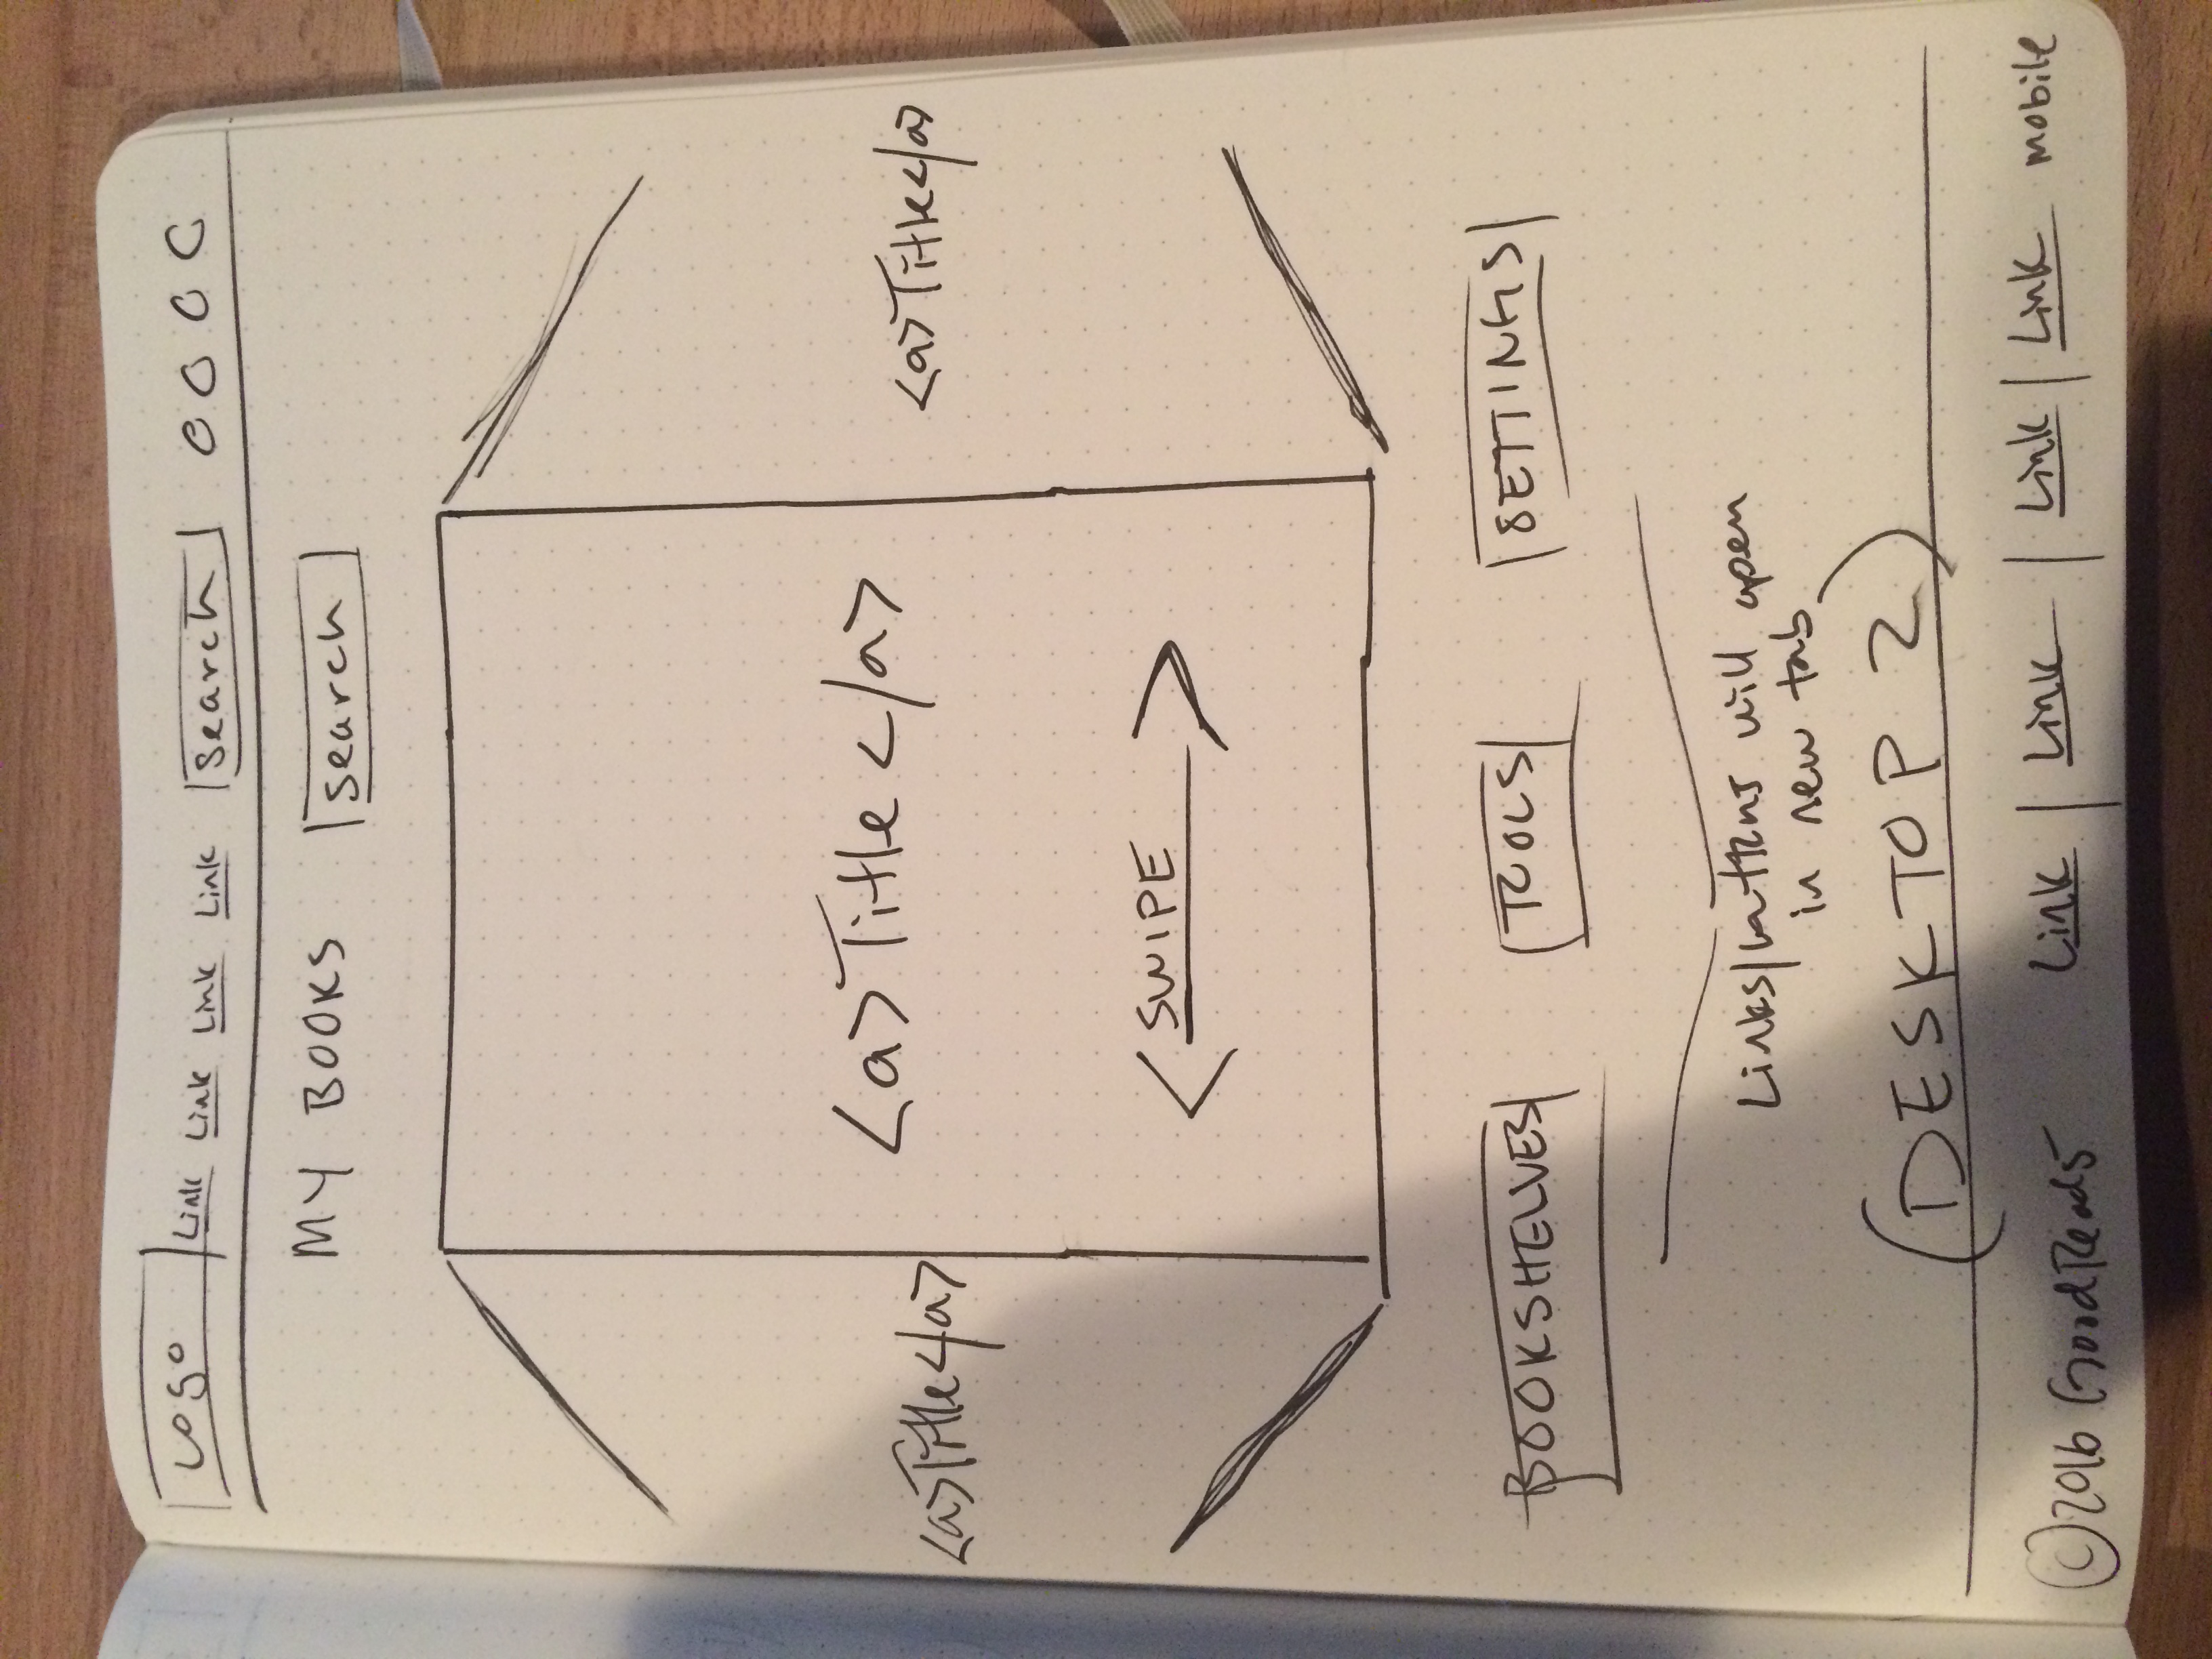 Logo Link Link Link Link Search
MY BOOKS Search
<a>Title</a>
<a>Title</a> <a>Title</a>
SWIPE
BOOKSHELVES TOOLS SETTINGS
Links/buttons will open
in new tab
(DESKTOP 2)
©2016 GoodReads Link | Link | Link | Link mobile